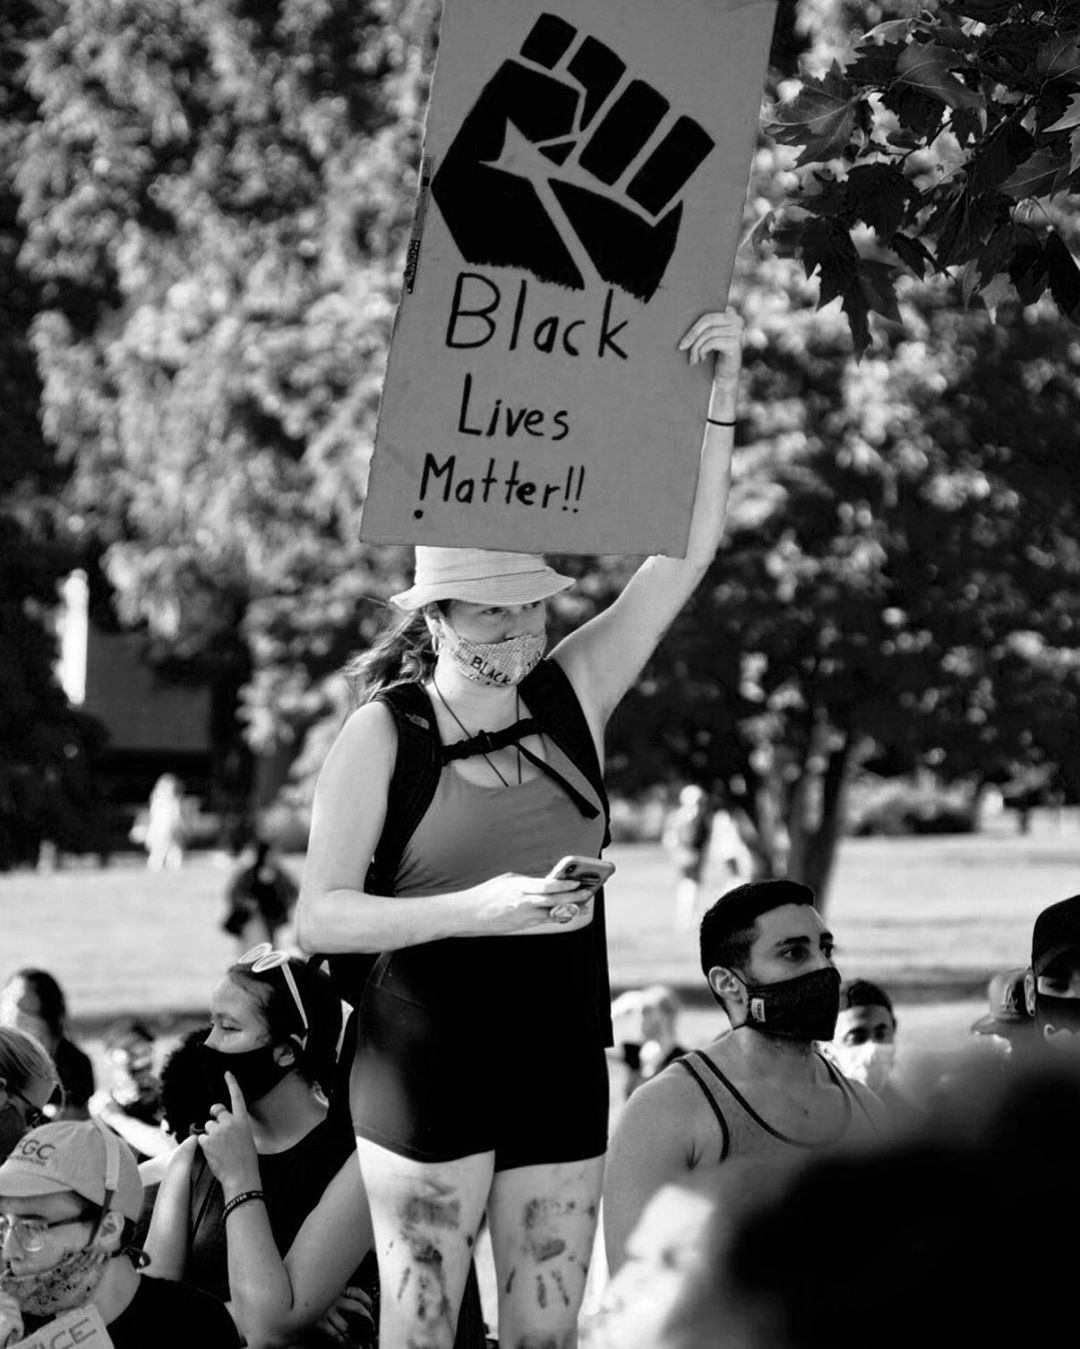 Black
Lives
Matter!!
BLACK
GC
ICE